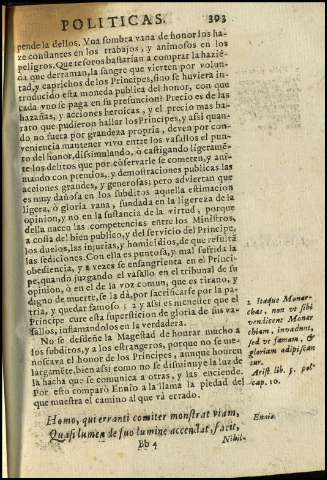 POLITICAS. 393
pende la dellos. Vna sombra vana de honor los ha-
ze constantes en los trabajos, y animosos en los
peligros. Que tesoros bastarian a comprar la hazié-
da que derraman, la sangre que vierten por volun-
tad, y caprichos de los Principes, sino se huviera in-
troducido esta moneda publica del honor, con que
cada vno se paga en su presuncion? Precio es de las
hazañas, y acciones heroicas, y el precio mas ba-
rato que pudieron hallar los Principes, y assi quan-
do no fuera por grandeza propria, deven por con-
veniencia mantener vivo entre los vasallos el pun-
to del honor, dissimulando, ò castigando ligeramé-
te los delitos que por cõservarle se cometen, y ani-
mando con premios, y demostraciones publicas las
acciones grandes, y generosas: pero adviertan que
es muy dañosa en los subditos aquella estimacion
ligera, ò gloria vana, fundada en la ligereza de la
opinion, y no en la sustancia de la virtud, porque
della nacen las competencias entre los Ministros,
a costa del bien publico, y del servicio del Principe,
los duelos, las injurias, y homicidios, de que resultã
las sediciones. Con ella es puntosa, y mal sufrida la
obediencia, y a vezes se ensangrienta en el Princi-
pe, quando juzgando el vasallo en el tribunal de su
opinion, ò en el de la voz comun, que es tirano, y
digno de muerte, se la dà, por sacrificarse por la pa-
tria, y quedar famoso: 2 y assi es menester que el
Principe cure esta supersticion de gloria de sus va-
sallos, inflamandolos en la verdadera.
No se desdeñe la Magestad de honrar mucho a
los subditos, y a los estrangeros, porque no se me-
noscava el honor de los Principes, aunque honren
largaméte, bien assi como no se disminuye la luz de
la hacha que se comunica a otras, y las enciende.
Por esto comparò Ennio a la llama la piedad del
que muestra el camino al que và errado.
Homo, qui erranti comiter monstrat viam,
Quasi lumen de suo lumine accendat, facit,
Bb 4
Nihil-
2 Itaque Monar-
chas, non ve sibi
vendicent Monar
chiam, invadunt,
sed vt famam, &
gloriam adipiscan
tur.
Arist. lib. 5. pol.
cap. 10.
Ennio.